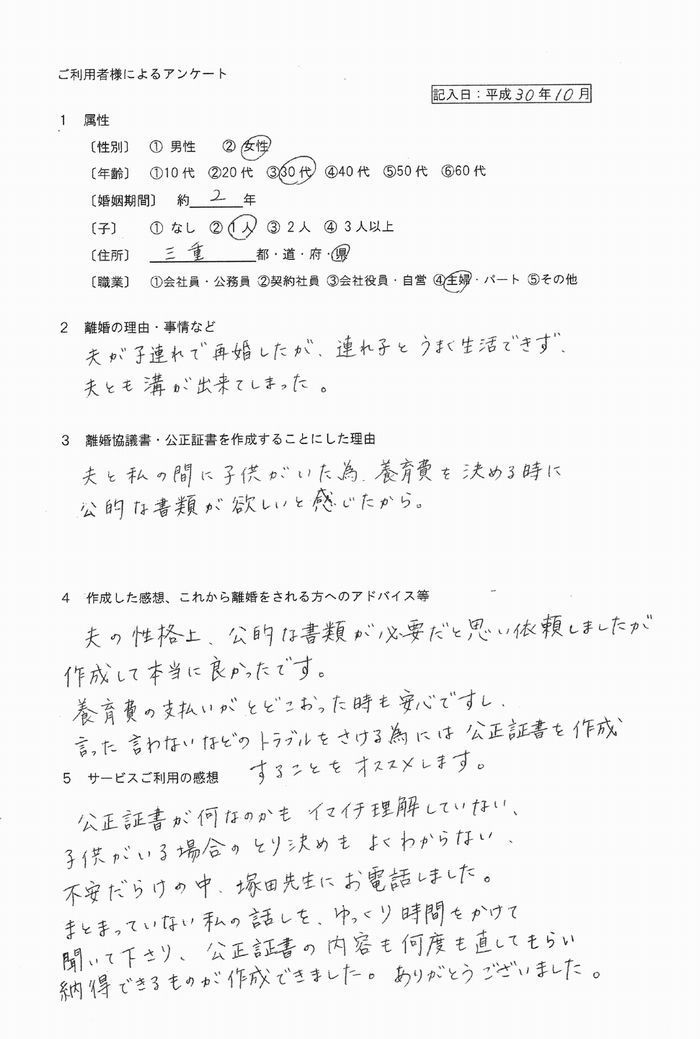 ご利用者様によるアンケート
記入日：平成30年10月
1 属性
〔性別〕 ① 男性 ② 女性
〔年齢〕 ①10代 ②20代 ③30代 ④40代 ⑤50代 ⑥60代
〔婚姻期間〕 約 2 年
〔子〕 ① なし ② 1人 ③ 2人 ④ 3人以上
〔住所〕 三重 都・道・府・県
〔職業〕 ①会社員・公務員 ②契約社員 ③会社役員・自営 ④主婦・パート ⑤その他
2 離婚の理由・事情など
夫が子連れで再婚したが、連れ子とうまく生活できず、
夫とも溝が出来てしまった。
3 離婚協議書・公正証書を作成することにした理由
夫と私の間に子供がいた為、養育費を決める時に
公的な書類が欲しいと感じたから。
4 作成した感想、これから離婚をされる方へのアドバイス等
夫の性格上、公的な書類が必要だと思い依頼しましたが
作成して本当に良かったです。
養育費の支払いがとどこおった時も安心ですし、
言った言わないなどのトラブルをさける為には公正証書を作成
することをオススメします。
5 サービスご利用の感想
公正証書が何なのかもイマイチ理解していない、
子供がいる場合のとり決めもよくわからない、
不安だらけの中、塚田先生にお電話しました。
まとまっていない私の話しを、ゆっくり時間をかけて
聞いて下さり、公正証書の内容も何度も直してもらい
納得できるものが作成できました。ありがとうございました。